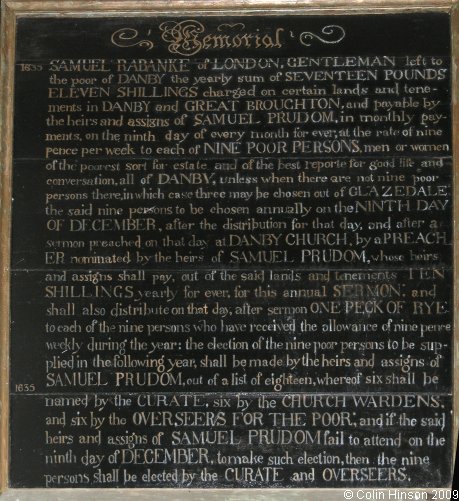 Memorial
1635 SAMUEL RABANKE of LONDON, GENTLEMAN left to
the poor of DANBY the yearly sum of SEVENTEEN POUNDS
ELEVEN SHILLINGS charged on certain lands and tene-
ments in DANBY and GREAT BROUGHTON, and payable by
the heirs and assigns of SAMUEL PRUDOM, in monthly pay-
ments, on the ninth day of every month for ever, at the rate of nine
pence per week to each of NINE POOR PERSONS, men or women
of the poorest sort for estate and of the best reporte for good life and
conversation, all of DANBY, unless when there are not nine poor
persons there, in which case three may be chosen out of GLAZEDALE
the said nine persons to be chosen annually on the NINTH DAY
OF DECEMBER, after the distribution for that day, and after a
sermon preached on that day at DANBY CHURCH, by a PREACH
ER nominated by the heirs of SAMUEL PRUDOM, whose heirs
and assigns shall pay, out of the said lands and tenements TEN
SHILLINGS yearly for ever, for this annual SERMON: and
shall also distribute on that day, after sermon ONE PECK OF RYE
to each of the nine persons who have received the allowance of nine pence
weekly during the year: the election of the nine poor persons to be sup-
plied in the following year, shall be made by the heirs and assigns of
SAMUEL PRUDOM, out of a list of eighteen, whereof six shall be
1635
named by the CURATE, six by the CHURCH WARDENS,
and six by the OVERSEERS FOR THE POOR; and if the said
heirs and assigns of SAMUEL PRUDOM fail to attend on the
ninth day of DECEMBER, to make such election, then the nine
persons shall be elected by the CURATE and OVERSEERS.
© Colin Hinson 2009